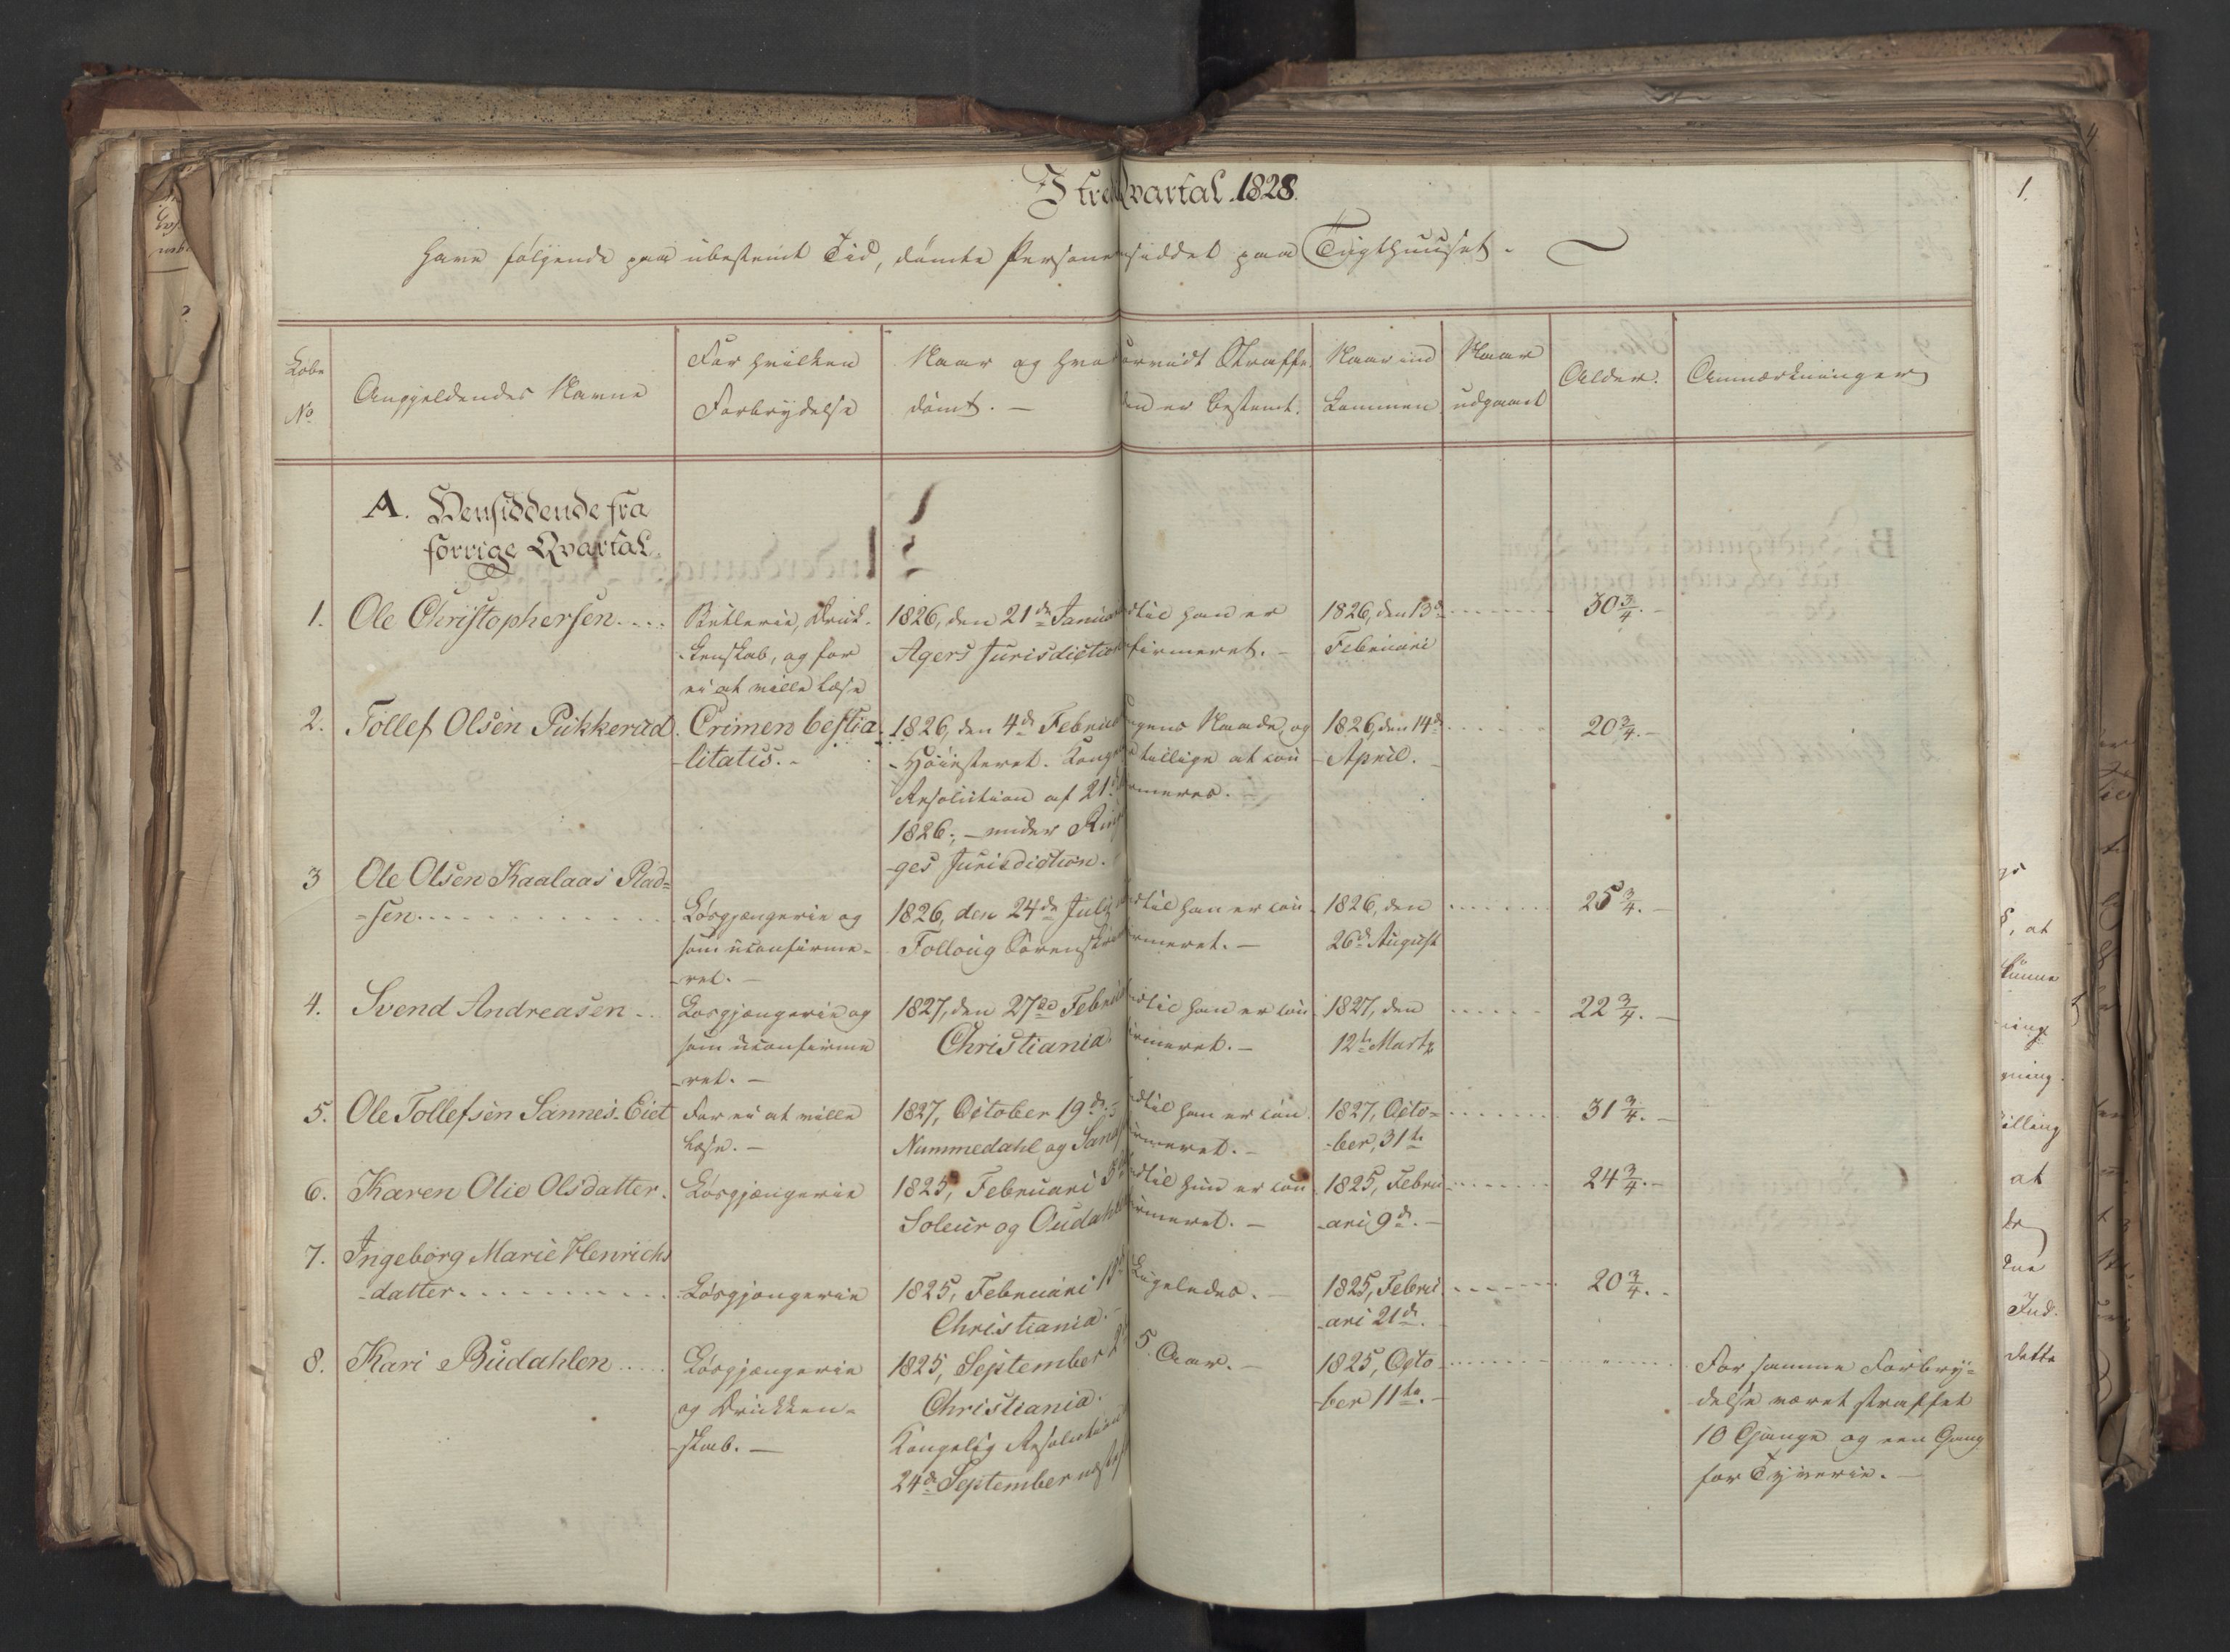 I tre Qvartal 1828.
Have følgende paa ubestemt Tid, dømte Personer siddet paa Tugthuuset.
Løbe No
Angjeldendes Navne
For hvilken Forbrydelse
Naar og hvor dømt.
Straffe er bestemt.
Naar ind kommen
Naar udgaaet
Alder.
Anmærkninger
A. Hensiddende fra
forrige Qvartal.
1. Ole Christophersen....
Betlerie, Druk-
kenskab, og for
ei at ville læse
1826, den 21de Januari
Agers Jurisdiction
dtil han er
firmeret.
1826, den 13de
Februari
30 3/4.
2. Tollef Olsen Pukkerud.
Crimen bestia-
litatis.
1826, den 4de Februa
Høiesteret. Kongel
Resolution af 21
1826. under Ring
ges Jurisdiction.
gens Naade, og
tillige at con
rmeres.
1826, den 14de
April.
20 3/4.
3 Ole Olsen Kaalaas Rad=
=sen
Løsgjængerie og
som uconfirme-
ret.
1826, den 24de July
Folloug Sorenskr
dtil han er con
rmeret.
1826, den
26de August
25 3/4.
4. Svend Andreasen
Løsgjængerie og
som uconfirme
ret.
1827, den 27de Februa
Christiania.
dtil han er con
irmeret.
1827, den
12te Martz
22 3/4.
5. Ole Tollefsen Sannes-Eiet
For ei at ville
læse.
1827, October 19de
Nummedahl og Sand
dtil han er con
irmeret.
1827, Octo-
-ber, 31te
31 3/4.
6. Karen Olie Olsdatter.
Løsgjængerie
1825, Februari
Soleur og Oudahl
dtil hun er con
irmeret.
1825, Febru-
-ari 9de.
24 3/4.
7. Ingeborg Marie Henrichs
-datter
Løsgjængerie
1825, Februari
Christiania.
Ligeledes.
1825, Febru
-ari 21de.
20 3/4.
8. Kari Budahlen
Løsgjængerie
og Drukken-
skab.
1825, September
Christiania.
Kongelig Resolution
24de September
5. Aar.
1825, Octo
-ber 11te.
For samme Forbry-
delse været straffet
10 Gange og een Gang
for Tyverie.
1.
at
kunne
at
Ind-
dette